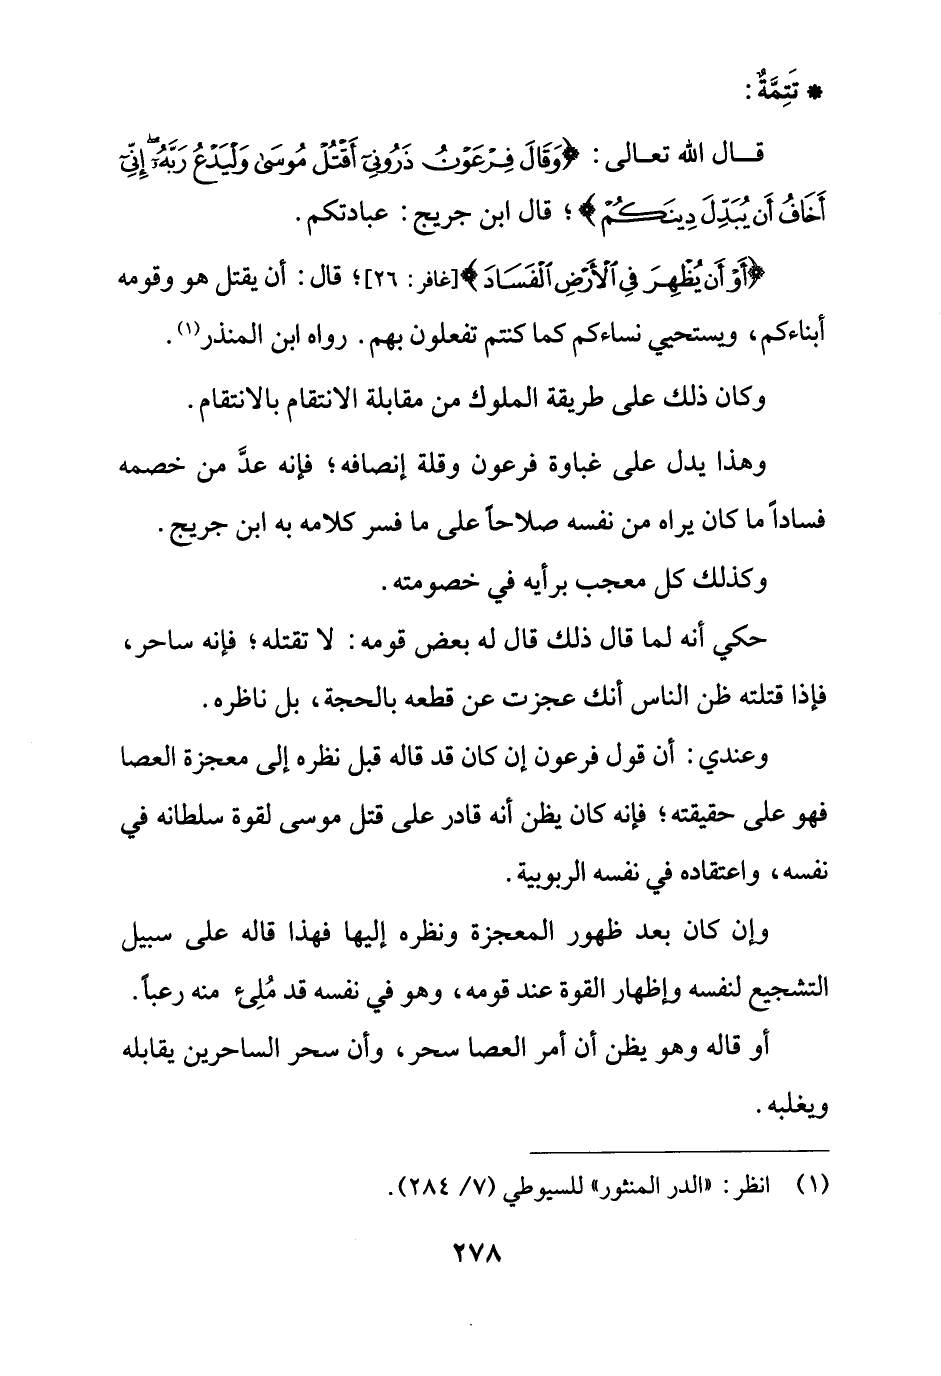 * تَتِمَّةٌ :
قال الله تعالى : ﴿وَقَالَ فِرْعَوْنُ ذَرُونِيٓ أَقْتُلْ مُوسَىٰ وَلْيَدْعُ رَبَّهُۥٓ ۖ إِنِّيٓ
أَخَافُ أَن يُبَدِّلَ دِينَكُمْ﴾ ؛ قال ابن جريج : عبادتكم .
﴿أَوْ أَن يُظْهِرَ فِي ٱلْأَرْضِ ٱلْفَسَادَ﴾ [غافر: ٢٦]؛ قال : أن يقتل هو وقومه
أبناءكم ، ويستحيي نساءكم كما كنتم تفعلون بهم . رواه ابن المنذر(١) .
وكان ذلك على طريقة الملوك من مقابلة الانتقام بالانتقام .
وهذا يدل على غباوة فرعون وقلة إنصافه ؛ فإنه عدَّ من خصمه
فساداً ما كان يراه من نفسه صلاحاً على ما فسر كلامه به ابن جريج .
وكذلك كل معجب برأيه في خصومته .
حكي أنه لما قال ذلك قال له بعض قومه : لا تقتله ؛ فإنه ساحر ،
فإذا قتلته ظن الناس أنك عجزت عن قطعه بالحجة ، بل ناظره .
وعندي : أن قول فرعون إن كان قد قاله قبل نظره إلى معجزة العصا
فهو على حقيقته ؛ فإنه كان يظن أنه قادر على قتل موسى لقوة سلطانه في
نفسه ، واعتقاده في نفسه الربوبية .
وإن كان بعد ظهور المعجزة ونظره إليها فهذا قاله على سبيل
التشجيع لنفسه وإظهار القوة عند قومه ، وهو في نفسه قد مُلِئ منه رعباً .
أو قاله وهو يظن أن أمر العصا سحر ، وأن سحر الساحرين يقابله
ويغلبه .
(١) انظر : «الدر المنثور» للسيوطي (٧/ ٢٨٤) .
٢٧٨